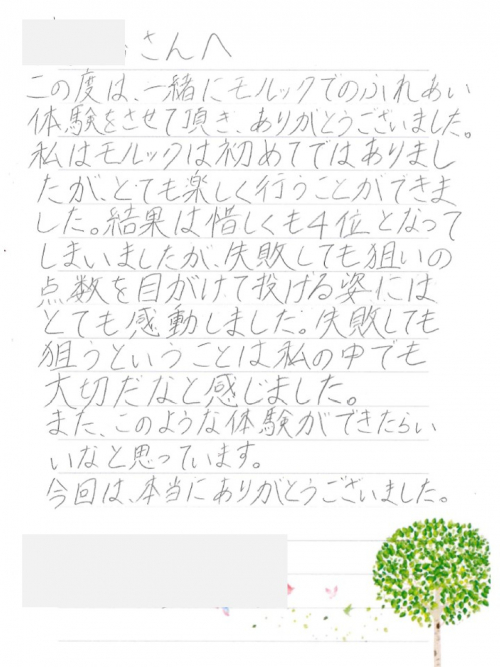 さんへ
この度は、一緒にモルックでのふれあい
体験をさせて頂き、ありがとうございました。
私はモルックは初めてではありまし
たが、とても楽しく行うことができま
した。結果は惜しくも4位となって
しまいましたが、失敗しても狙いの
点数を目がけて投げる姿には
とても感動しました。失敗しても
狙うということは私の中でも
大切だなと感じました。
また、このような体験ができたらい
いなと思っています。
今回は、本当にありがとうございました。